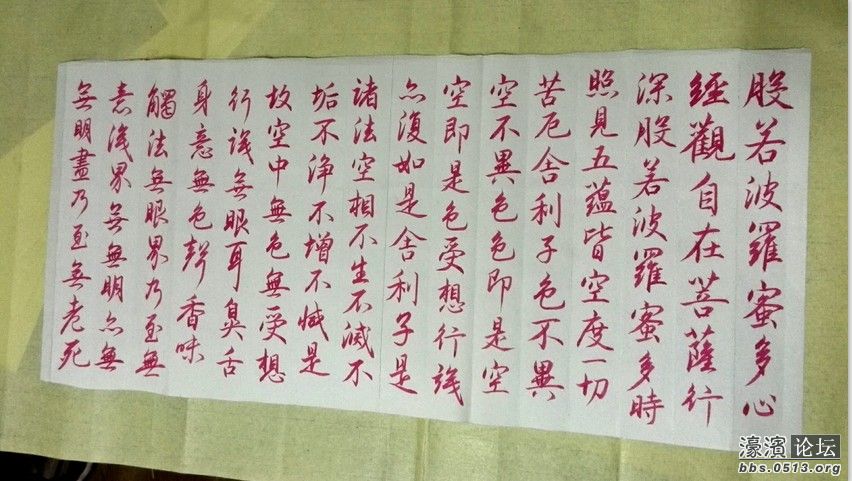 般若波羅蜜多心
經觀自在菩薩行
深般若波羅蜜多時
照見五蘊皆空度一切
苦厄舍利子色不異
空不異色色即是空
空即是色受想行識
亦復如是舍利子是
諸法空相不生不滅不
垢不淨不增不減是
故空中無色無受想
行識無眼耳鼻舌
身意無色聲香味
觸法無眼界乃至無
意識界無無明亦無
無明盡乃至無老死
濠濱论坛
bbs.0513.org